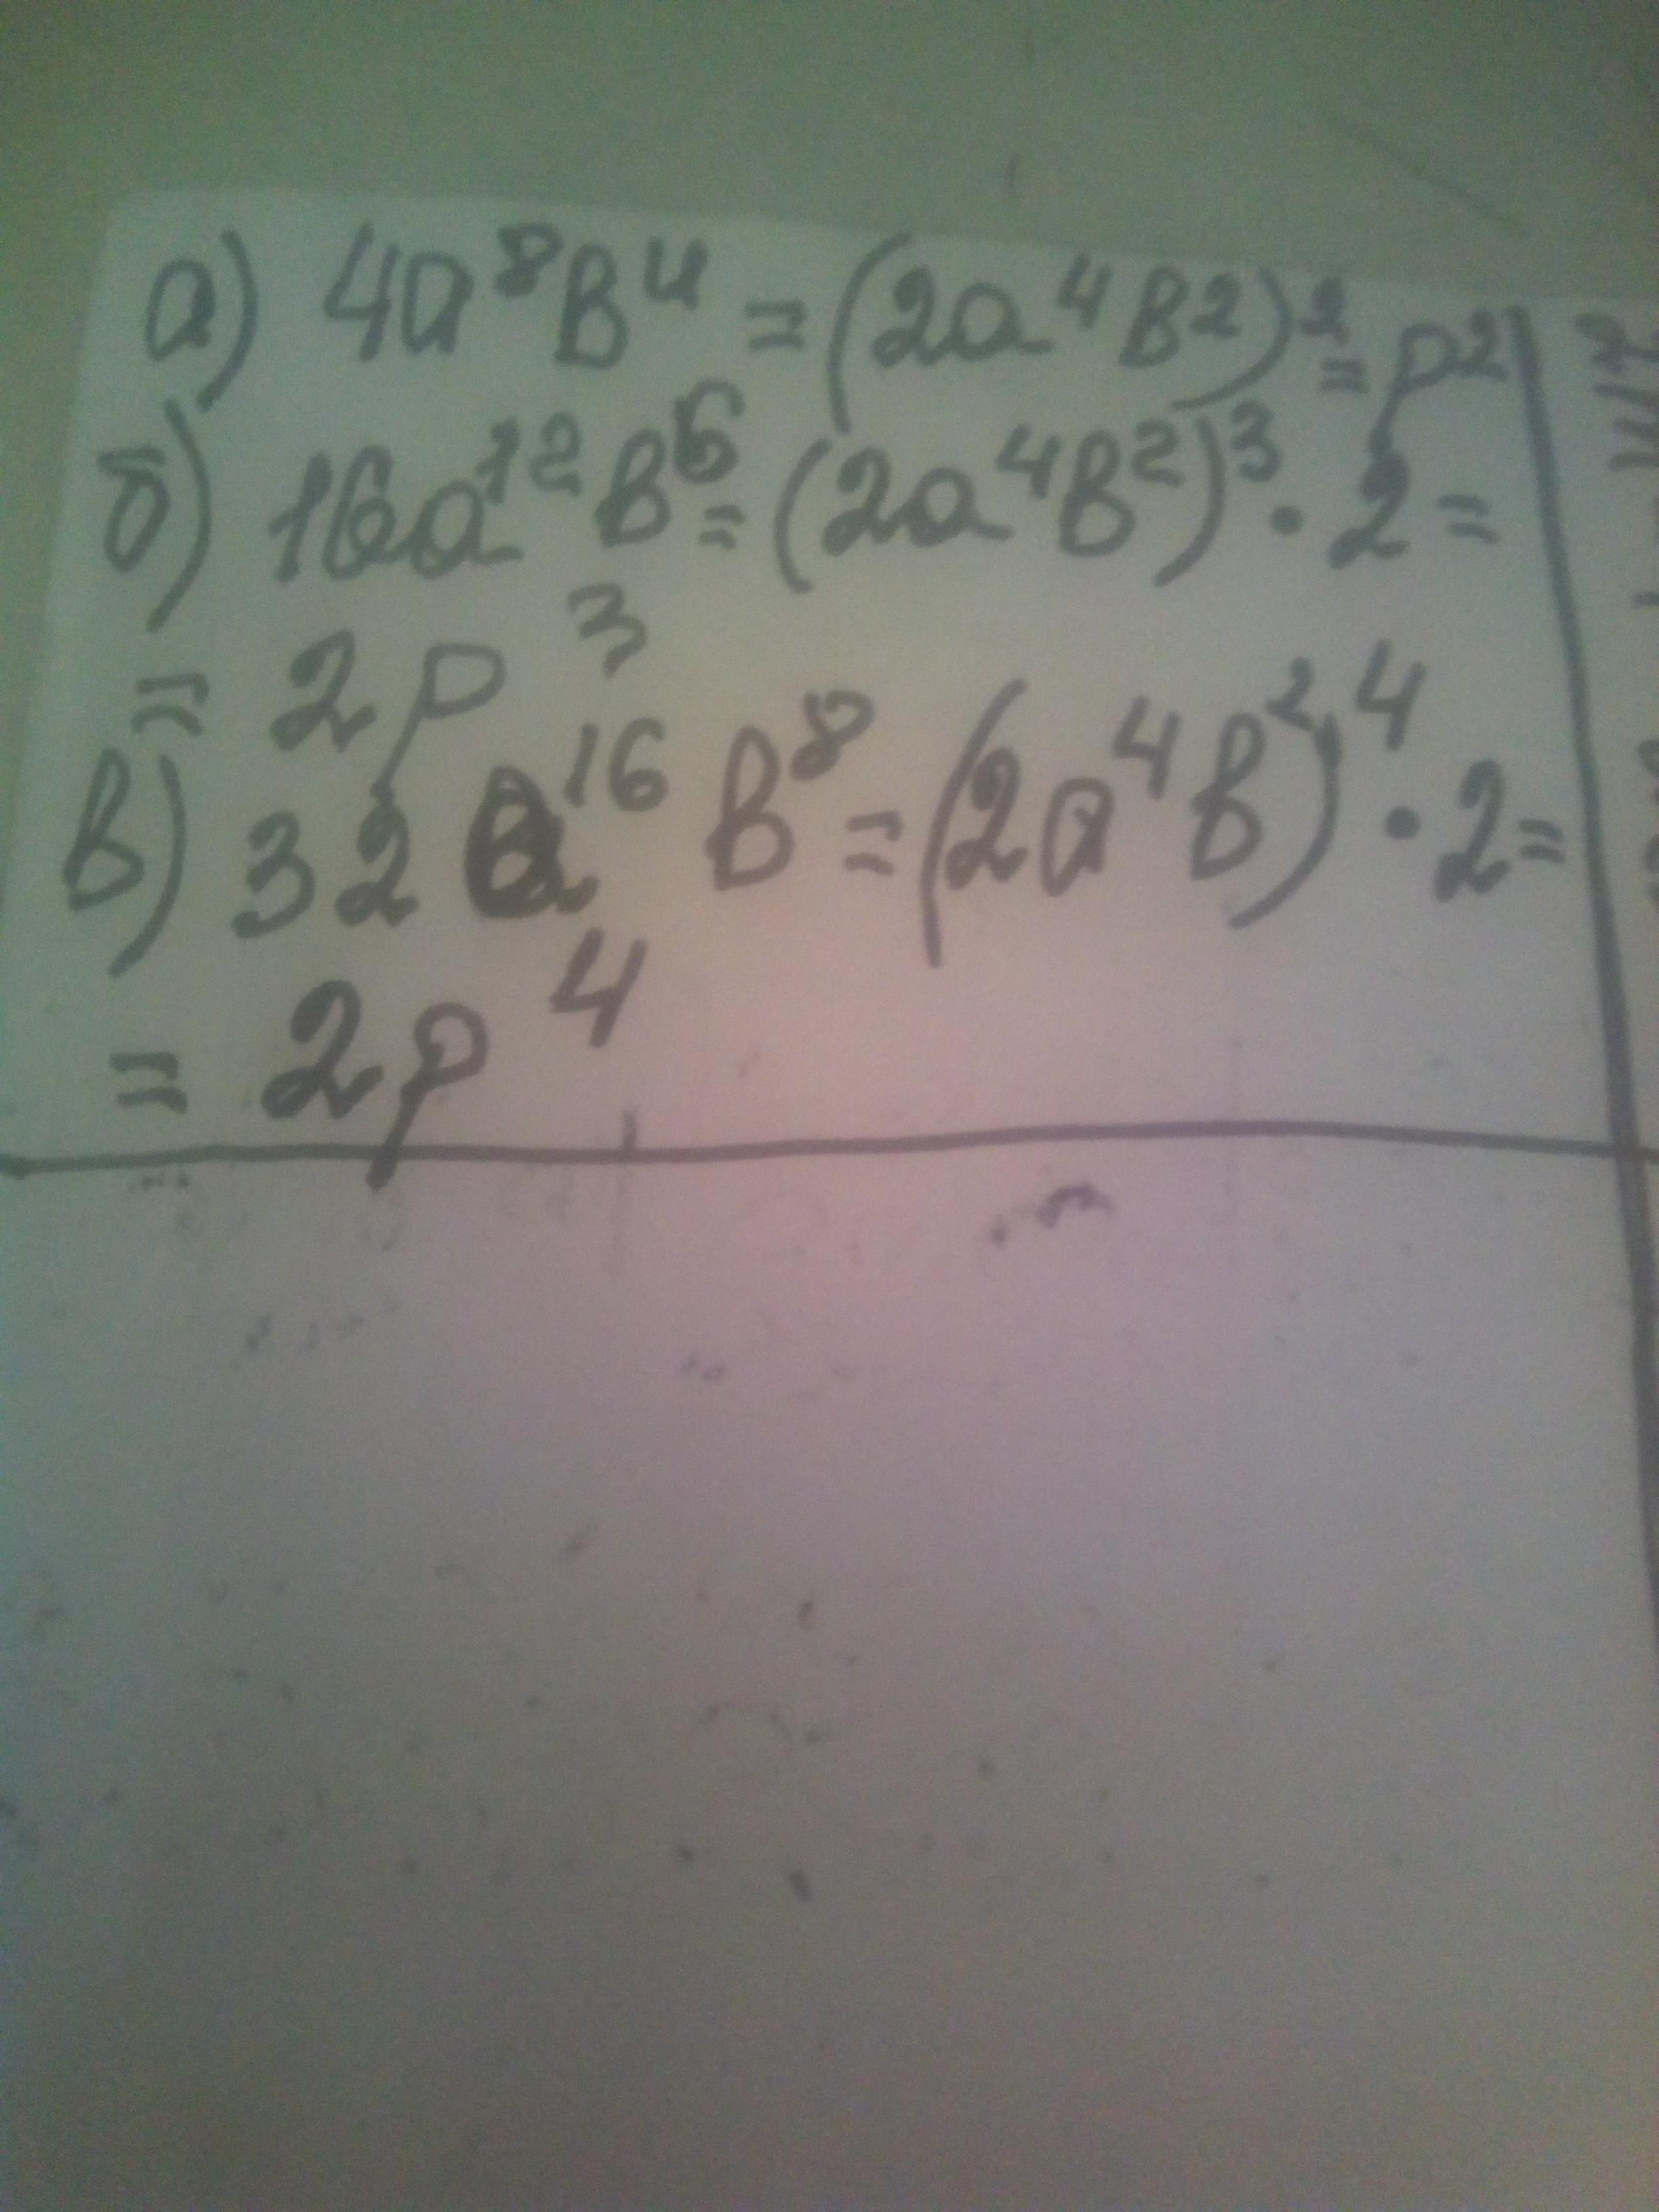 а) 4a⁸b⁴ = (2a⁴b²)² = p²
б) 16a¹²b⁶ = (2a⁴b²)³ · 2 =
= 2p³
в) 32a¹⁶b⁸ = (2a⁴b²)⁴ · 2 =
= 2p⁴